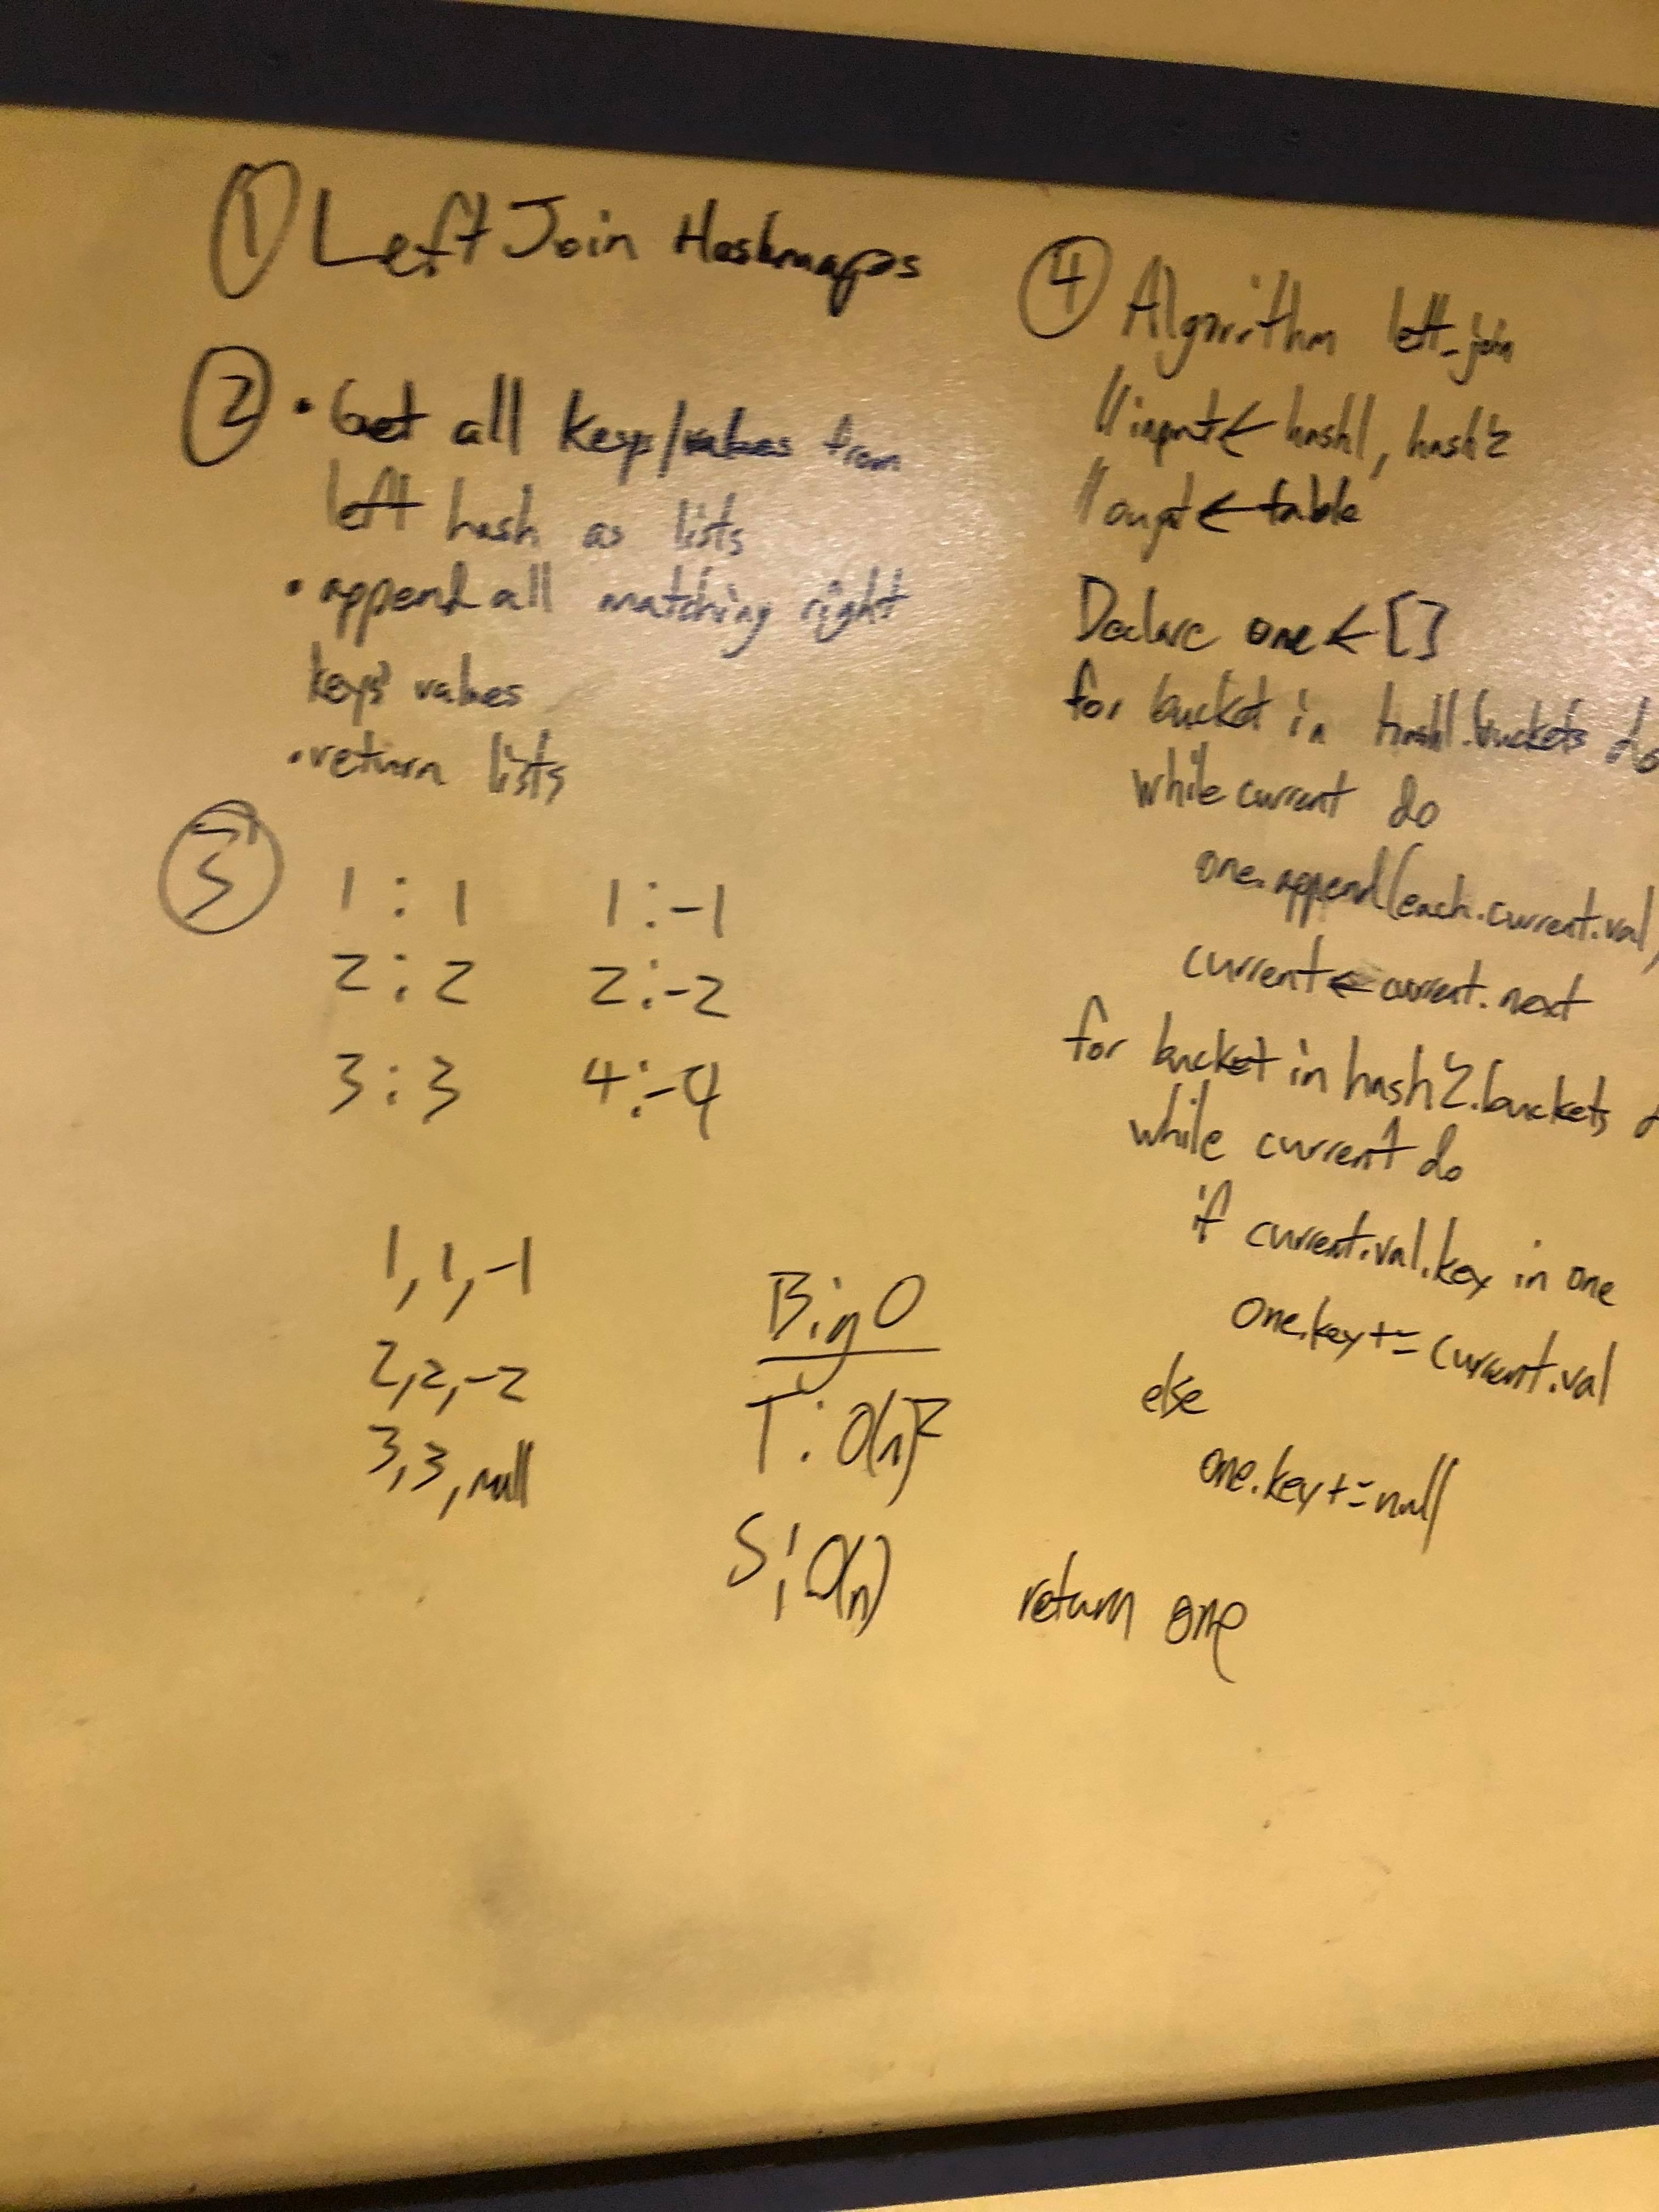 1 Left Join Hashmaps
2 • Get all keys/values from
left hash as lists
• append all matching right
keys' values
• return lists
3
1 : 1 1 : -1
2 : 2 2 : -2
3 : 3 4 : -4
1, 1, -1
2, 2, -2
3, 3, null
Big O
T : O(n)²
S : O(n)
4 Algorithm left_join
// input ← hash1, hash2
// ← table
Declare one ← []
for bucket in hash1.buckets do
while current do
one.append(each.current.val,
current ← current.next
for bucket in hash2.buckets
while current do
if current.val.key in one
one.key += current.val
else
one.key += null
return one